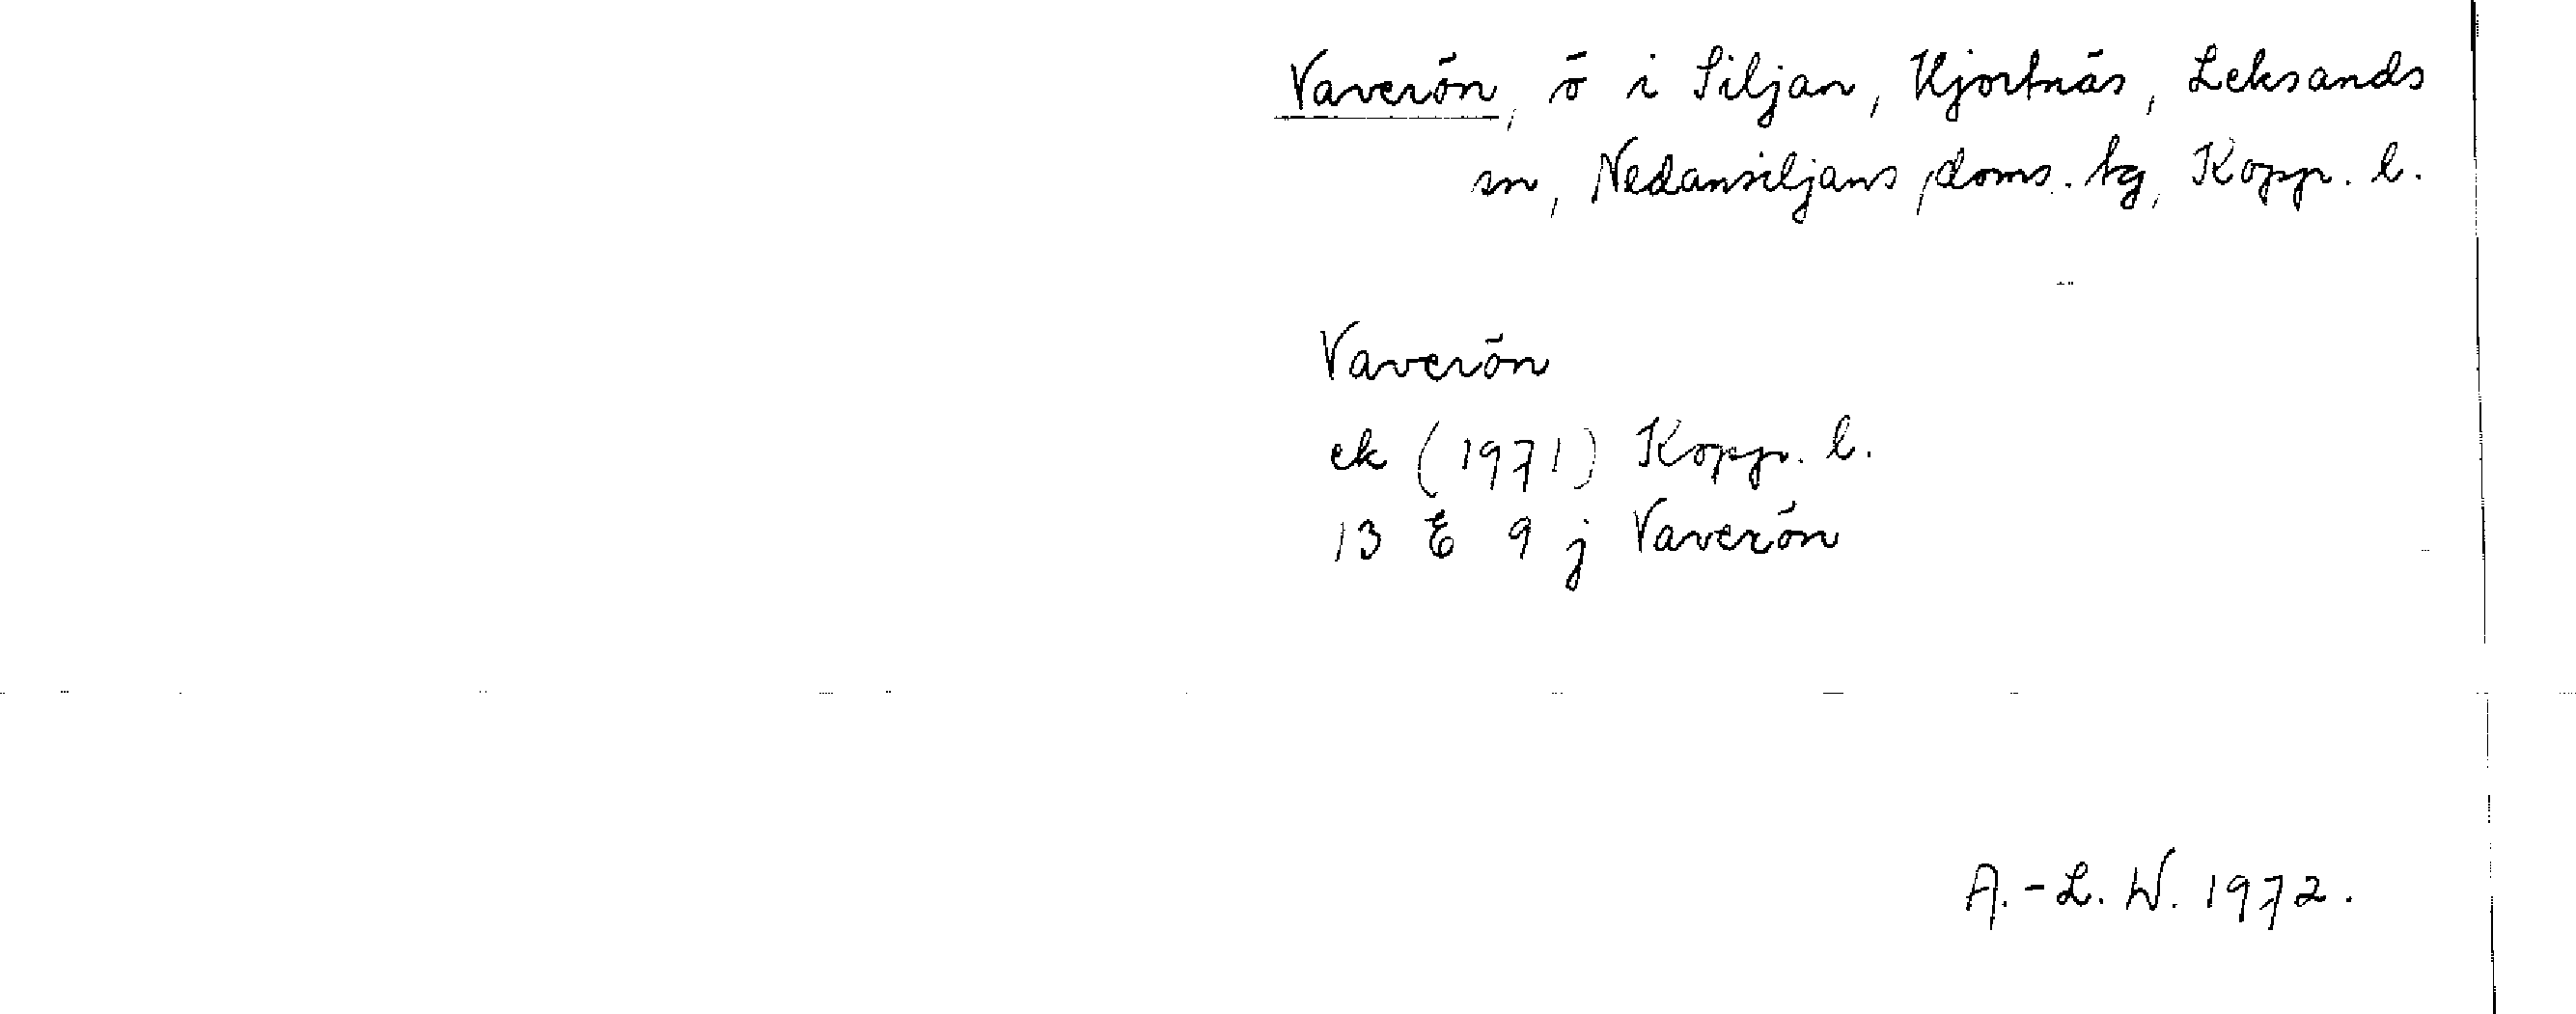 Vaverön, ö i Siljan, Hjortnäs, Leksands
sn, Nedansiljans doms. tg, Kopp. l.
Vaverön
ek (1971) Kopp. l.
13 E 9 j Vaverön
A.-L. W. 1972.